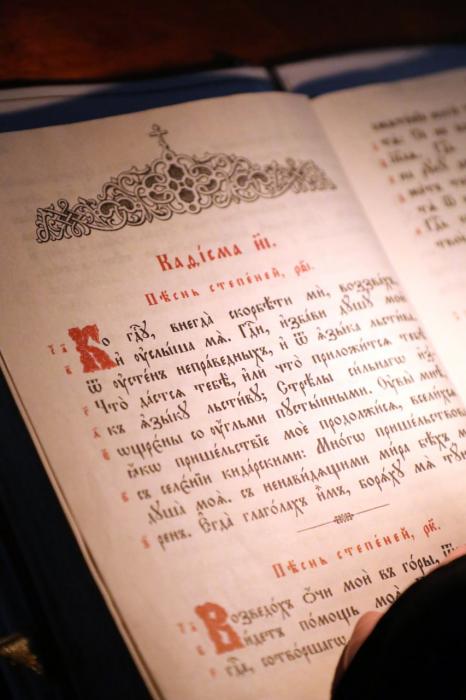 Каѳі́сма и҃і.
Пѣ́снь степе́ней, рѳ҃і.
Ко гдⷭ҇ꙋ, внегда̀ скорбѣ́ти мѝ, воззва́хъ,
и҆ ᲂу҆слы́ша мѧ̀. Гдⷭ҇и, и҆зба́ви дꙋ́шꙋ мою̀
ѿ ᲂу҆сте́нъ непра́ведныхъ, и҆ ѿ ѧ҆зы́ка льсти́ва.
Что̀ да́стсѧ тебѣ̀, и҆лѝ что̀ приложи́тсѧ тебѣ̀
къ ѧ҆зы́кꙋ льсти́вꙋ; Стрѣ́лы си́льнагѡ и҆з-
ѡщре́ны со ᲂу҆́гльми пꙋсты́нными. Оу҆вы̀ мнѣ̀,
ꙗ҆́кѡ прише́льствїе моѐ продолжи́сѧ, всели́хсѧ
съ селе́нїи кида́рскими: Мно́гѡ прише́льствова
дꙋша̀ моѧ̀. съ ненави́дѧщими ми́ра бѣ́хъ ми-
ренъ. Е҆гда̀ глаго́лахъ и҆̀мъ, борѧ́хꙋ мѧ̀ тꙋ́не.
Пѣ́снь степе́ней, рк҃.
Возведо́хъ ѻ҆́чи моѝ въ го́ры,
по́мощь моѧ̀
гдⷭ҇а, сотво́ршагѡ